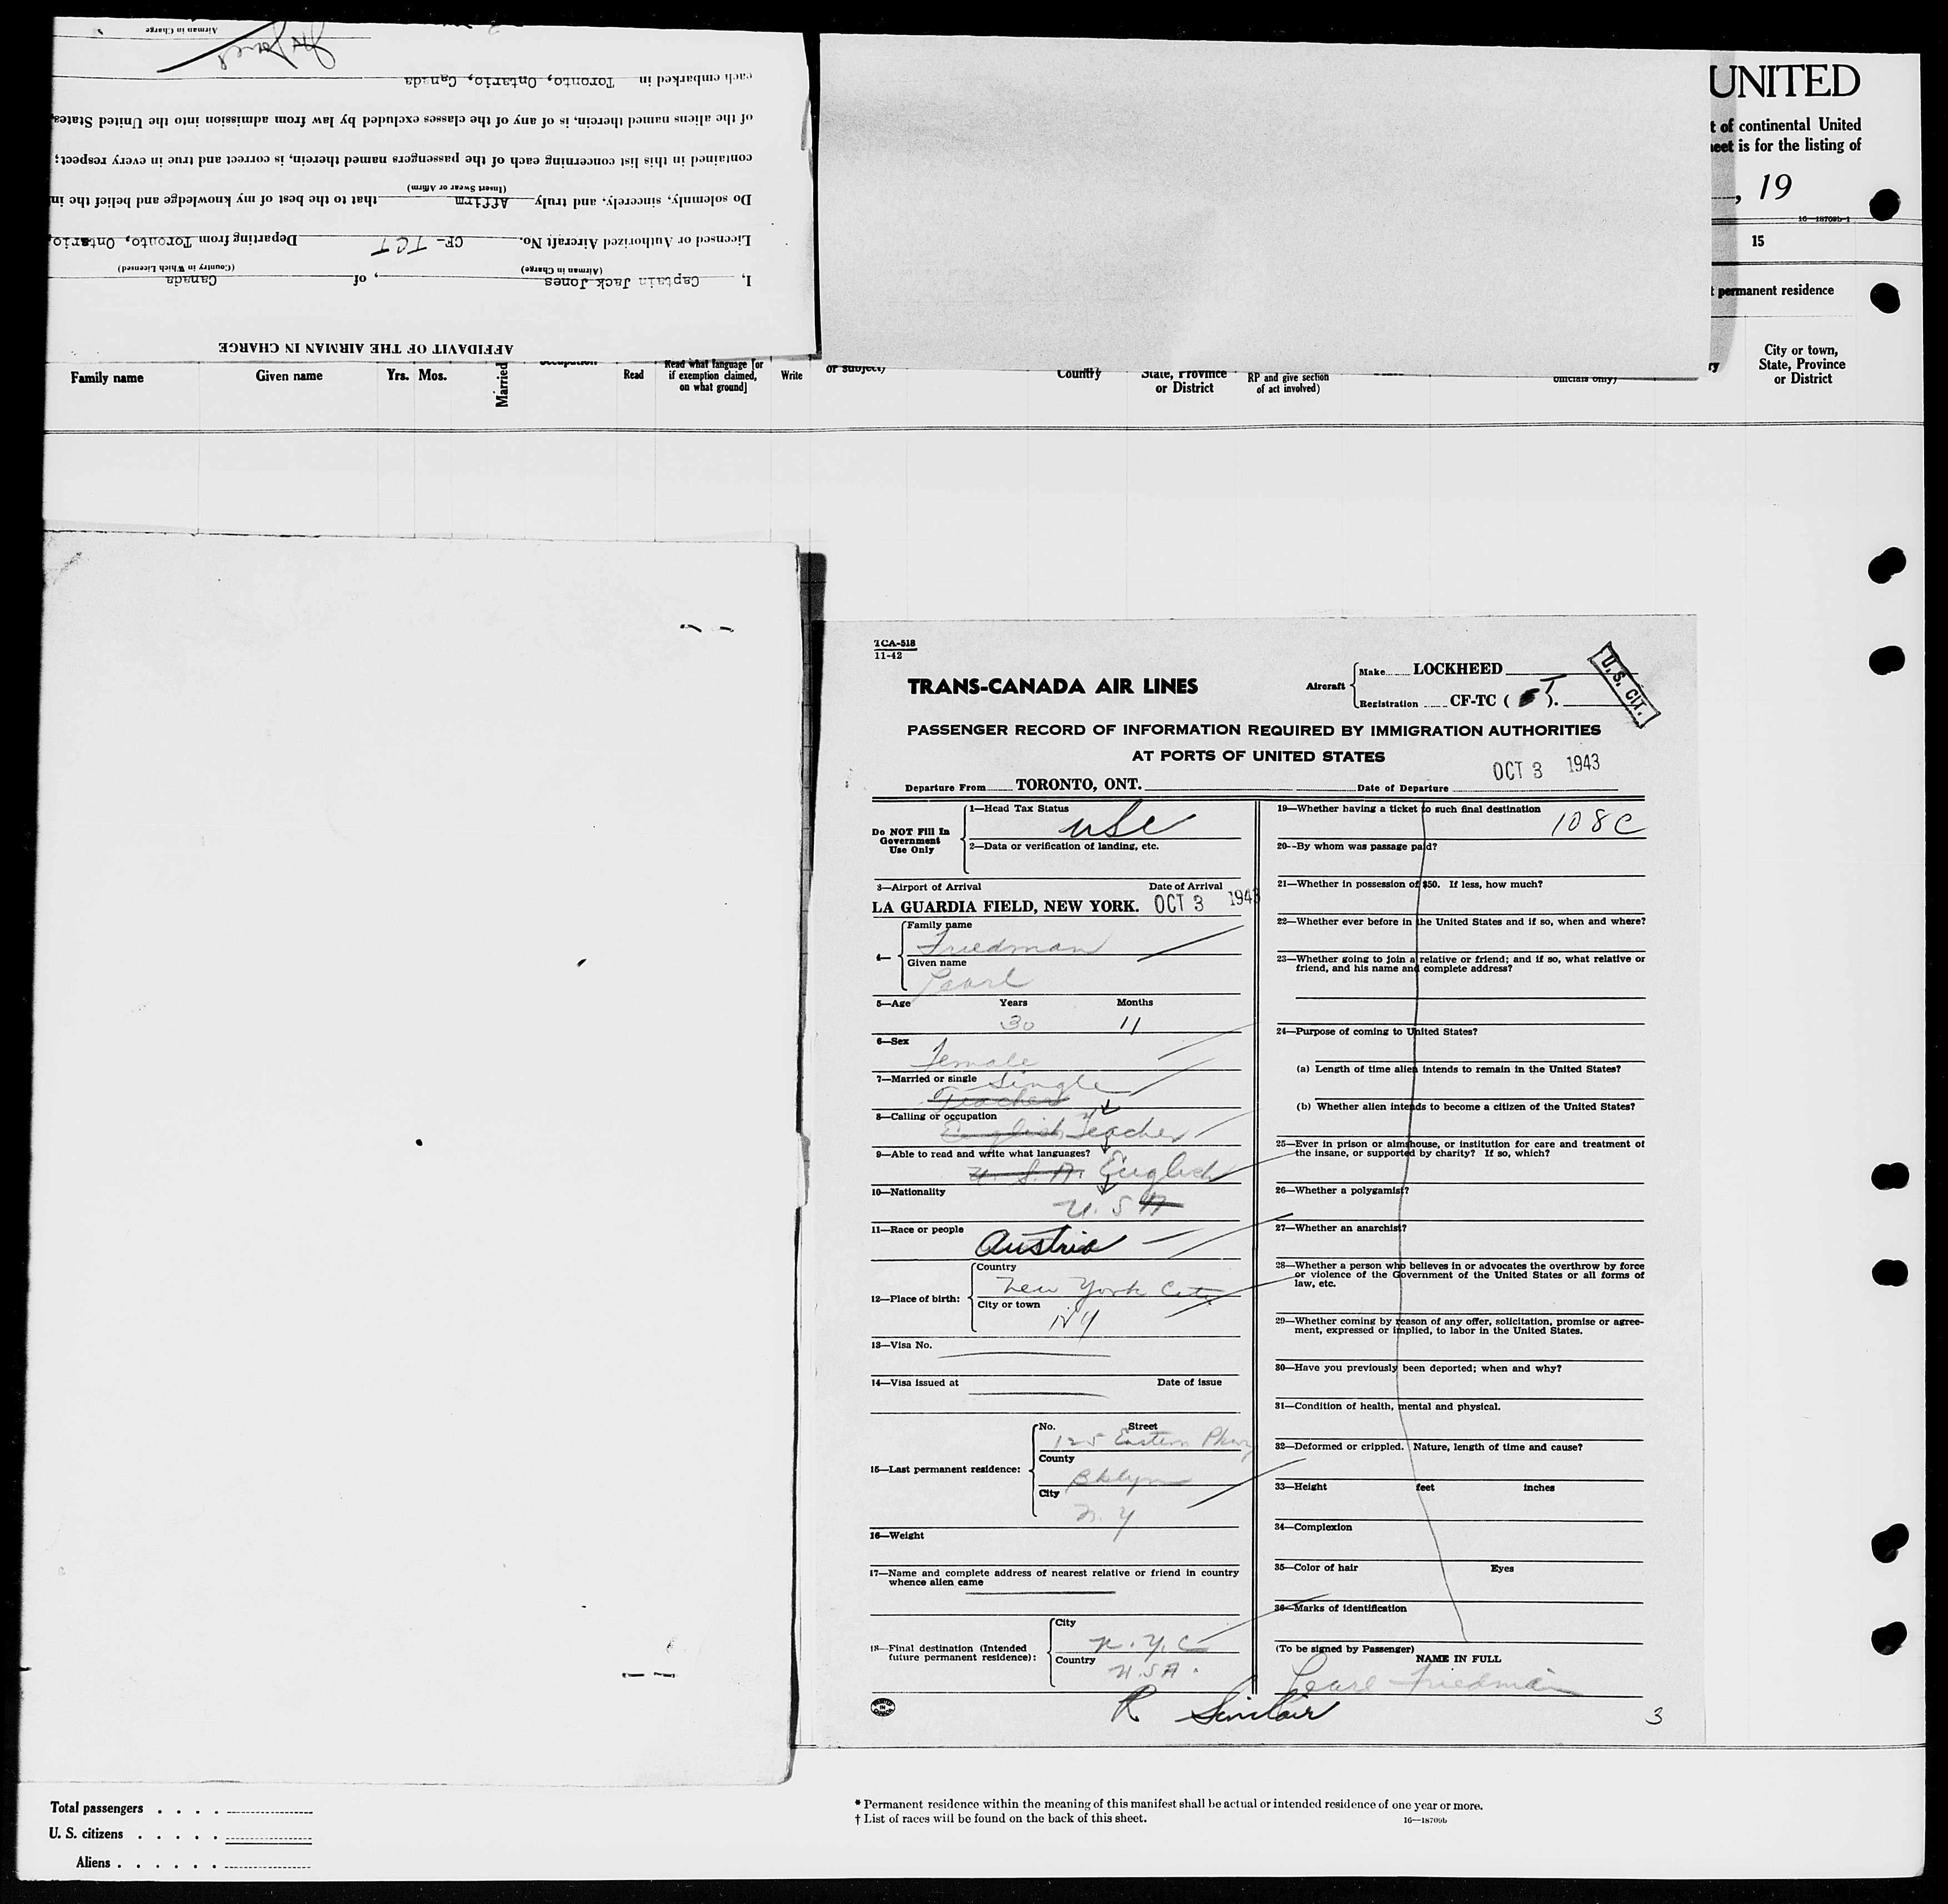 AFFIDAVIT OF THE AIRMAN IN CHARGE
I, Captain Jack Jones, of Canada
(Airman in Charge) (Country in Which Licensed)
Licensed or Authorized Aircraft No. CF-TCT Departing from Toronto, Ontario,
Do solemnly, sincerely, and truly Affirm that to the best of my knowledge and belief the in
(Insert Swear or Affirm)
contained in this list concerning each of the passengers named therein, is correct and true in every respect;
of the aliens named therein, is of any of the classes excluded by law from admission into the United States
each embarked in Toronto, Ontario, Canada
Jones
Airman in Charge
UNITED
t of continental United
eet is for the listing of
, 19
16—18709b-1
15
t permanent residence
Family name Given name Yrs. Mos. Married Occupation Read Read what language [or if exemption claimed, on what ground] Write
or subject) Country State, Province or District RP and give section of act involved) officials only) ry City or town, State, Province or District
TCA-518
11-42
TRANS-CANADA AIR LINES
Aircraft Make LOCKHEED
Registration CF-TC ( T ).
U.S. CIT.
PASSENGER RECORD OF INFORMATION REQUIRED BY IMMIGRATION AUTHORITIES
AT PORTS OF UNITED STATES
Departure From TORONTO, ONT. Date of Departure OCT 3 1943
Do NOT Fill In Government Use Only
1—Head Tax Status
USC
2—Data or verification of landing, etc.
3—Airport of Arrival Date of Arrival
LA GUARDIA FIELD, NEW YORK. OCT 3 1943
4— Family name
Friedman
Given name
Pearl
5—Age Years Months
30 11
6—Sex
Female
7—Married or single Single
Teacher
8—Calling or occupation
English Teacher
9—Able to read and write what languages?
U.S.A. English
10—Nationality
U.S.A
11—Race or people
Austria
12—Place of birth: Country
New York City
City or town
NY
13—Visa No.
14—Visa issued at Date of issue
15—Last permanent residence: No. Street
125 Eastern Pkwy
County
Bklyn
City
N.Y
16—Weight
17—Name and complete address of nearest relative or friend in country
whence alien came
18—Final destination (Intended
future permanent residence): City
N.Y.C
Country
U.S.A.
19—Whether having a ticket to such final destination
108C
20--By whom was passage paid?
21—Whether in possession of $50. If less, how much?
22—Whether ever before in the United States and if so, when and where?
23—Whether going to join a relative or friend; and if so, what relative or
friend, and his name and complete address?
24—Purpose of coming to United States?
(a) Length of time alien intends to remain in the United States?
(b) Whether alien intends to become a citizen of the United States?
25—Ever in prison or almshouse, or institution for care and treatment of
the insane, or supported by charity? If so, which?
26—Whether a polygamist?
27—Whether an anarchist?
28—Whether a person who believes in or advocates the overthrow by force
or violence of the Government of the United States or all forms of
law, etc.
29—Whether coming by reason of any offer, solicitation, promise or agree-
ment, expressed or implied, to labor in the United States.
30—Have you previously been deported; when and why?
31—Condition of health, mental and physical.
32—Deformed or crippled. Nature, length of time and cause?
33—Height feet inches
34—Complexion
35—Color of hair Eyes
36—Marks of identification
(To be signed by Passenger)
NAME IN FULL
Pearl Friedman
R Sinclair
3
Total passengers . . . .
U. S. citizens . . . . .
Aliens . . . . . .
* Permanent residence within the meaning of this manifest shall be actual or intended residence of one year or more.
† List of races will be found on the back of this sheet. 16—18709b